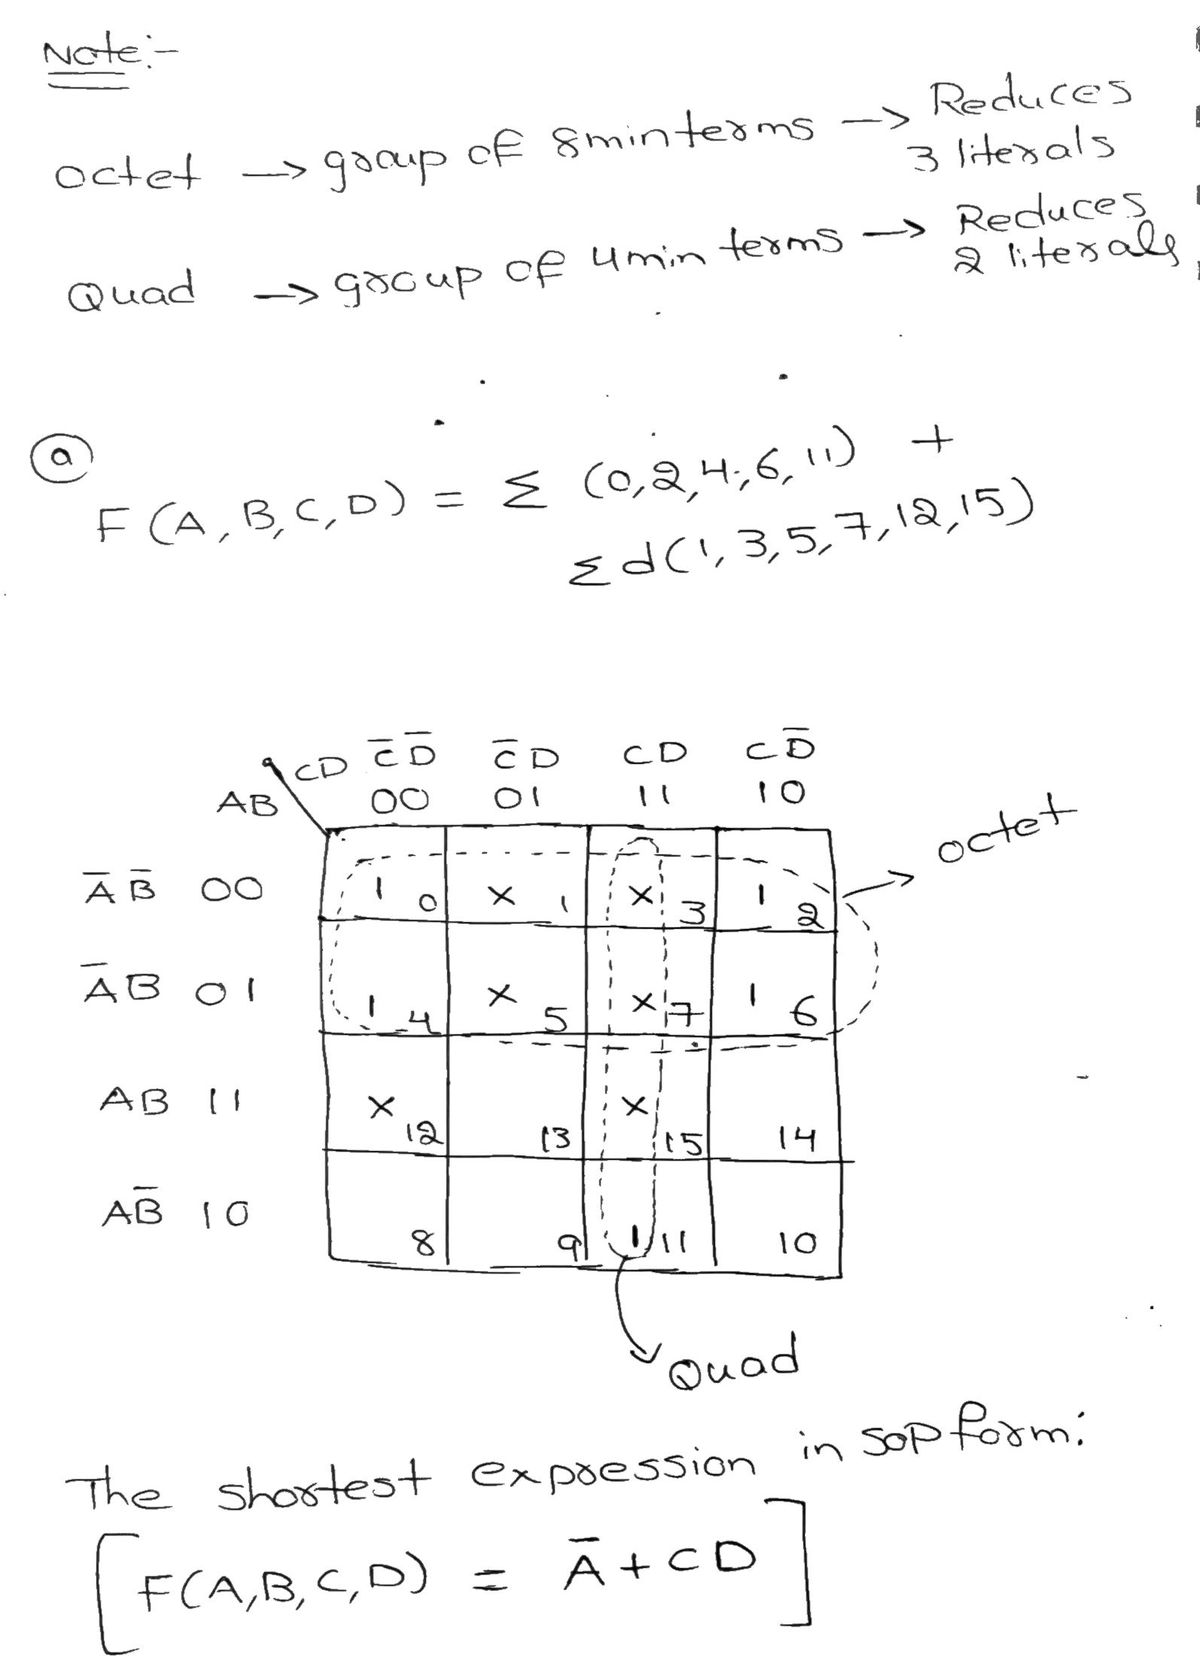 Note:-
octet → group of 8 min terms → Reduces
3 literals
Quad → group of 4 min terms → Reduces
2 literals
(a)
F(A,B,C,D) = Σ (0,2,4,6,11) +
Σd(1,3,5,7,12,15)
CD C̅D̅ C̅D CD CD̅
AB 00 01 11 10
octet
A̅B̅ 00 1 0 X 1 X 3 1 2
A̅B 01 1 4 X 5 X 7 1 6
AB 11 X 12 13 X 15 14
AB̅ 10 8 9 1 11 10
Quad
The shortest expression in SOP form:
[F(A,B,C,D) = A̅ + CD]